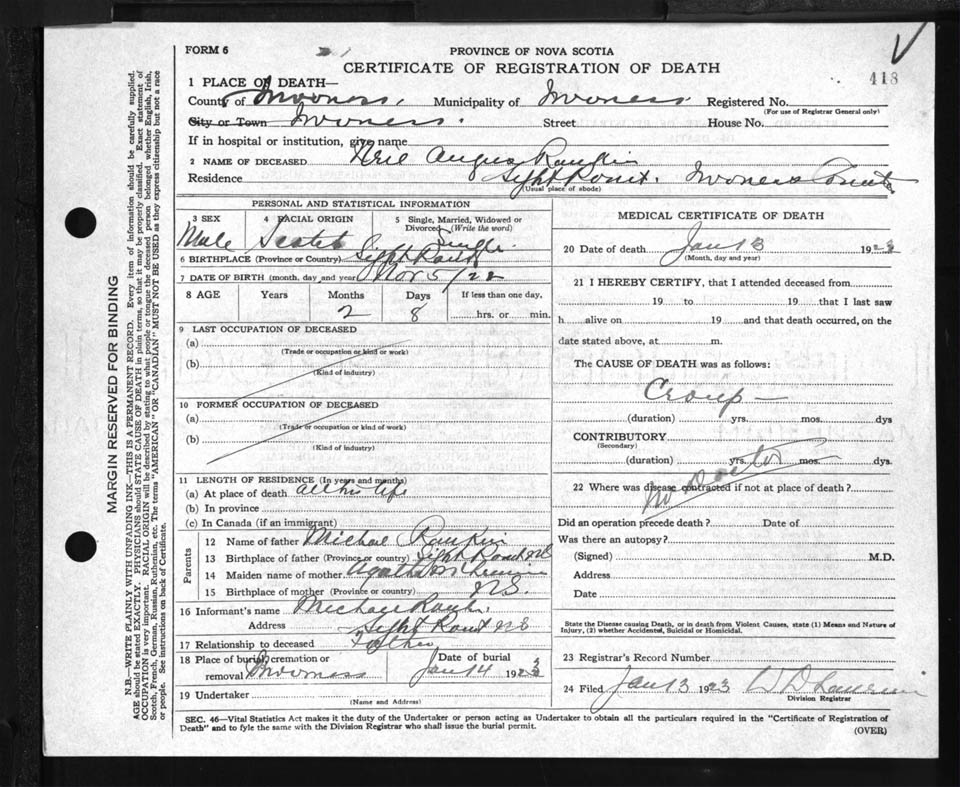 FORM 6
PROVINCE OF NOVA SCOTIA
CERTIFICATE OF REGISTRATION OF DEATH
418
1 PLACE OF DEATH—
County of Inverness. Municipality of Inverness. Registered No.
(For use of Registrar General only)
City or Town Inverness. Street House No.
If in hospital or institution, give name
2 NAME OF DECEASED Angus Rankin
Residence Sight Point. Inverness County
(Usual place of abode)
PERSONAL AND STATISTICAL INFORMATION
3 SEX 4 RACIAL ORIGIN 5 Single, Married, Widowed or Divorced (Write the word)
Male Scotch Single.
6 BIRTHPLACE (Province or Country) Sight Point
7 DATE OF BIRTH (month, day, and year) Nov 5/22
8 AGE Years Months Days If less than one day,
2 8 hrs. or min.
9 LAST OCCUPATION OF DECEASED
(a)
(Trade or occupation or kind or work)
(b)
(Kind of industry)
10 FORMER OCCUPATION OF DECEASED
(a)
(Trade or occupation or kind of work)
(b)
(Kind of industry)
11 LENGTH OF RESIDENCE (In years and months)
(a) At place of death all his life
(b) In province
(c) In Canada (if an immigrant)
Parents
12 Name of father Michael Rankin
13 Birthplace of father (Province or country) Sight Point NS
14 Maiden name of mother Agatha
15 Birthplace of mother (Province or country) NS.
16 Informant's name Michael Rankin
Address Sight Point NS
17 Relationship to deceased Father
18 Place of burial, cremation or removal Inverness Date of burial Jan 14 1923
19 Undertaker
(Name and Address)
MEDICAL CERTIFICATE OF DEATH
20 Date of death Jan 13 1923
(Month, day and year)
21 I HEREBY CERTIFY, that I attended deceased from
19 to 19 that I last saw
h alive on 19 and that death occurred, on the
date stated above, at m.
The CAUSE OF DEATH was as follows:
Croup —
(duration) yrs. mos. dys
CONTRIBUTORY
(Secondary)
(duration) yrs. mos. dys.
no Doctor
22 Where was disease contracted if not at place of death?
Did an operation precede death? Date of
Was there an autopsy?
(Signed) M.D.
Address
Date
State the Disease causing Death, or in death from Violent Causes, state (1) Means and Nature of Injury, (2) whether Accidental, Suicidal or Homicidal.
23 Registrar's Record Number
24 Filed Jan 13 1923
Division Registrar
SEC. 46—Vital Statistics Act makes it the duty of the Undertaker or person acting as Undertaker to obtain all the particulars required in the "Certificate of Registration of
Death" and to fyle the same with the Division Registrar who shall issue the burial permit.
(OVER)
MARGIN RESERVED FOR BINDING
N.B.—WRITE PLAINLY WITH UNFADING INK—THIS IS A PERMANENT RECORD. Every item of information should be carefully supplied.
AGE should be stated EXACTLY. PHYSICIANS should STATE CAUSE OF DEATH in plain terms, so that it may be properly classified. Exact statement of
OCCUPATION is very important. RACIAL ORIGIN will be described by stating to what people or tongue the deceased person belonged whether English, Irish,
Scotch, French, German, Russian, Ruthenian, etc. The terms "AMERICAN" OR "CANADIAN" MUST NOT BE USED as they express citizenship but not a race
or people. See instructions on back of Certificate.